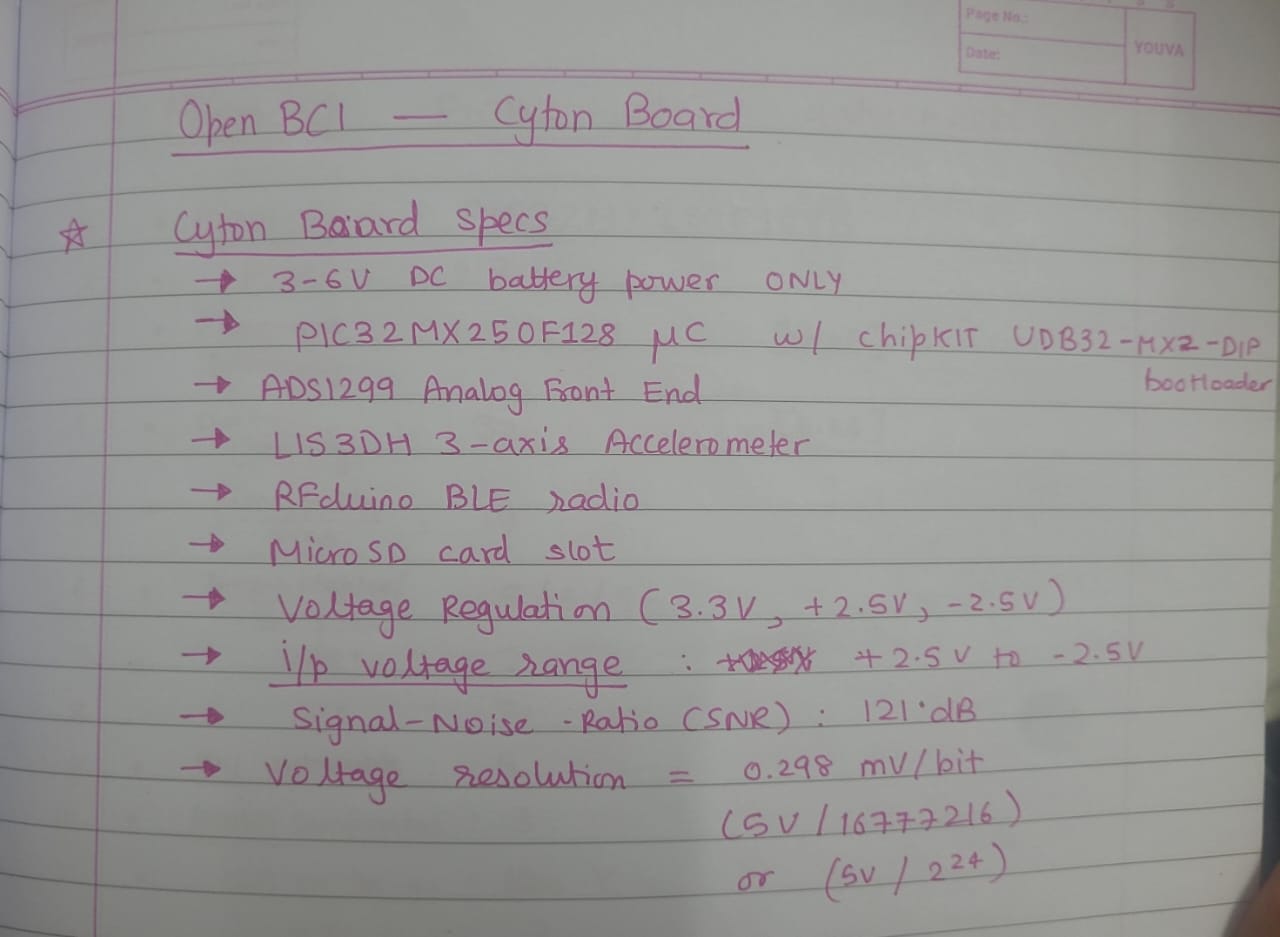 Page No.:
Date:
YOUVA
Open BCI — Cyton Board
☆ Cyton Board specs
→ 3-6V DC battery power ONLY
→ PIC32MX250F128 μC w/ chipKIT UDB32-MX2-DIP
bootloader
→ ADS1299 Analog Front End
→ LIS3DH 3-axis Accelerometer
→ RFduino BLE radio
→ Micro SD card slot
→ Voltage Regulation (3.3V, +2.5V, -2.5V)
→ i/p voltage range : +2.5V to -2.5V
→ Signal-Noise-Ratio (SNR) : 121 dB
→ Voltage resolution = 0.298 mV/bit
(5V / 16777216)
or (5V / 2²⁴)